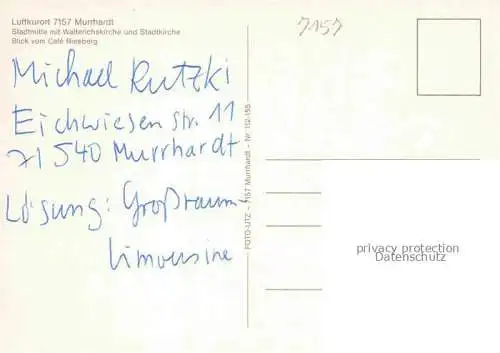 Luftkurort 7157 Murrhardt
Stadtmitte mit Walterichskirche und Stadtkirche
Blick vom Café Rieseberg
7157
Michael Rutzki
Eichwiesenstr. 11
71540 Murrhardt
Lösung: Großraum-
limousine
FOTO-UTZ - 7157 Murrhardt - Nr. 112-155
privacy protection
Datenschutz